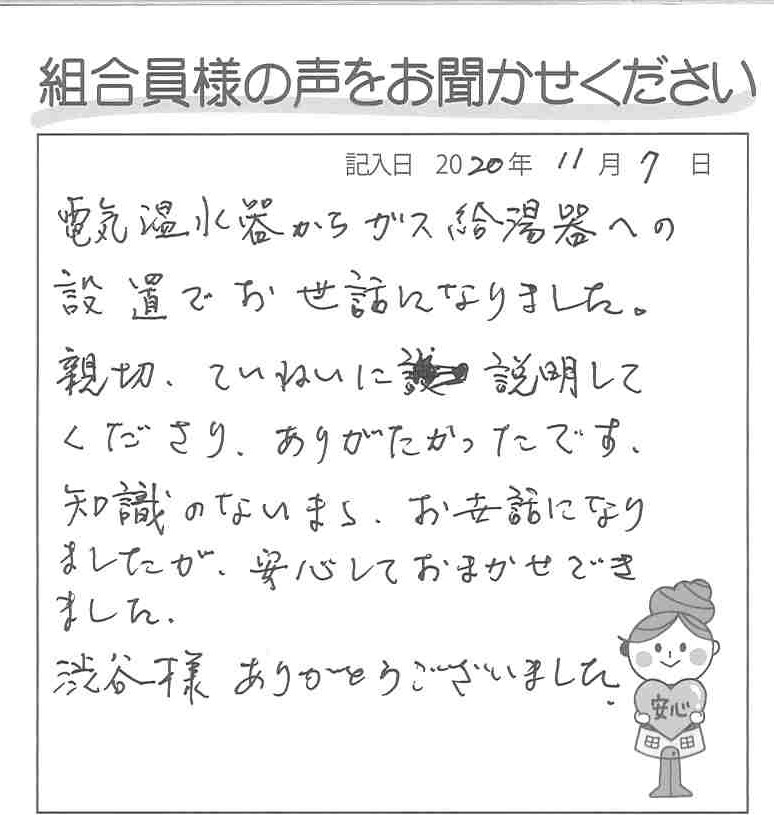 組合員様の声をお聞かせください
記入日 2020年 11月 7日
電気温水器からガス給湯器への
設置でお世話になりました。
親切、ていねいに 説明して
くださり、ありがたかったです、
知識のないまま、お世話になり
ましたが、安心しておまかせでき
ました.
渋谷様 ありがとうございました.
安心